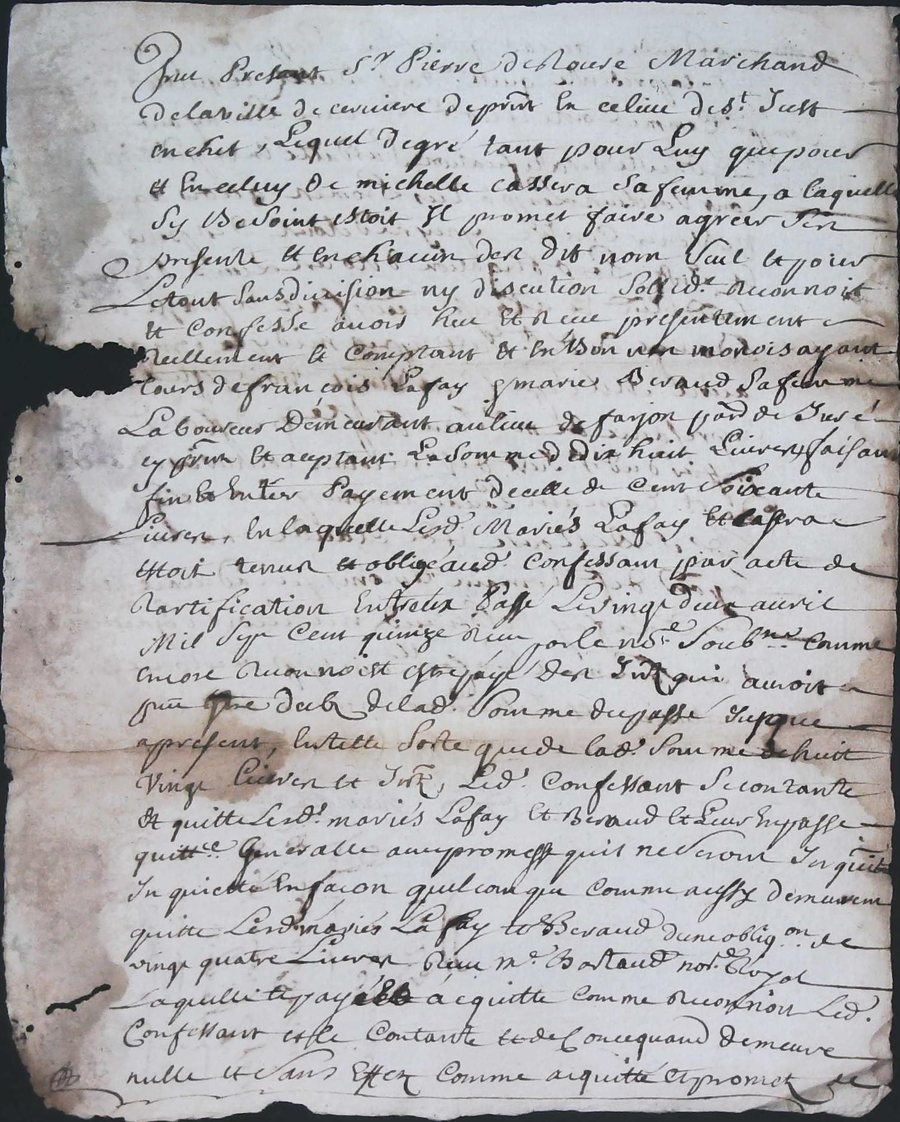 fut Present Sr Pierre deRoure Marchand
delaville de cerviere deprnt En celluy de st Just
en chet, Lequel degré tant pour Luy que pour
et En celuy de michelle cassera sa femme, a laquelle
sy Besoint Estoit Il promet faire agréer
presente et En chacun des dit nom seul et pour
Letout sans division ny discution sollidr Reconnoit
et Confesse avoir heu et Receu presentement
Reellement et Comptant et En Bon monois ayant
cours de francois Lafay marie Beraud sa femme
Laboureur Demeurant aulieu de farjon parr de Juré
cy prnt et aceptant La somme de dix huit Livres faisant
fin et Entier Payement decelle de Cent soixante
Livres, En laquelle Lesd. Mariés Lafay et
Estoit tenus et obligé aud. Confessant par acte de
Rartification Entreux Passé Levingt deux avril
Mil sept Cent quinze Receu par le nore soubne comme
encore Reconnoist estrepayé des qui avoit
delad. somme du passé jusque
apresent, En telle sorte que de lad. somme de huit
Vingt Livres et, Led. Confessant se contante
et quitte Lesd. mariés Lafay et Beraud et Leur En passe
quittce Generalle avec promesse quil ne seront
Inquietté En facon quelconque comme aussy demeurent
quitte Lesd. mariés Lafay et Beraud dune obligon de
vingt quatre Livres Receu me Bartaud nore Royal
Laquelle acquitte comme Reconnoit Led.
Confessant et se Contante et de Concequand demeure
nulle et sans Effet comme acquitté et promet